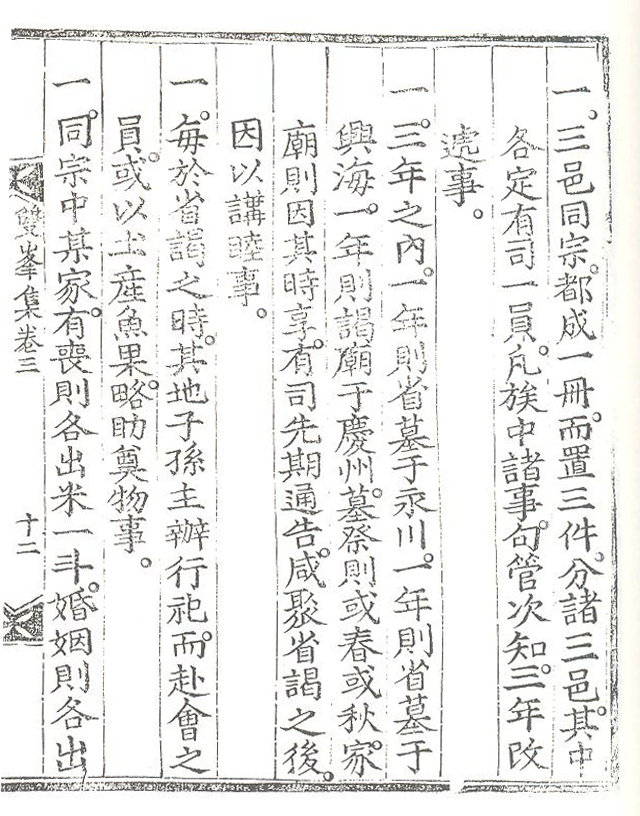 一。三邑同宗。都成一冊。而置三件。分諸三邑。其中
各定有司一員。凡族中諸事。句管次知。三年改
遞事。
一。三年之內。一年則省墓于永川。一年則省墓于
興海。一年則謁廟于慶州。墓祭則或春或秋。家
廟則因其時享。有司先期通告。咸聚省謁之後。
因以講睦事。
一。每於省謁之時。其地子孫主辦行祀。而赴會之
員。或以土產魚果。略助奠物事。
一。同宗中某家。有喪則各出米一斗。婚姻則各出
雙峯集卷三
十二